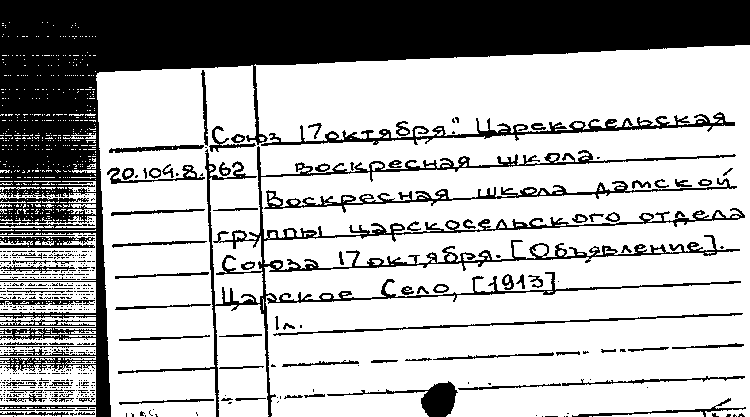 "Союз 17 октября." Царскосельская
20.109.8.262 воскресная школа.
Воскресная школа дамской
группы царскосельского отдела
Союза 17 октября. [Объявление].
Царское Село, [1913]
1л.